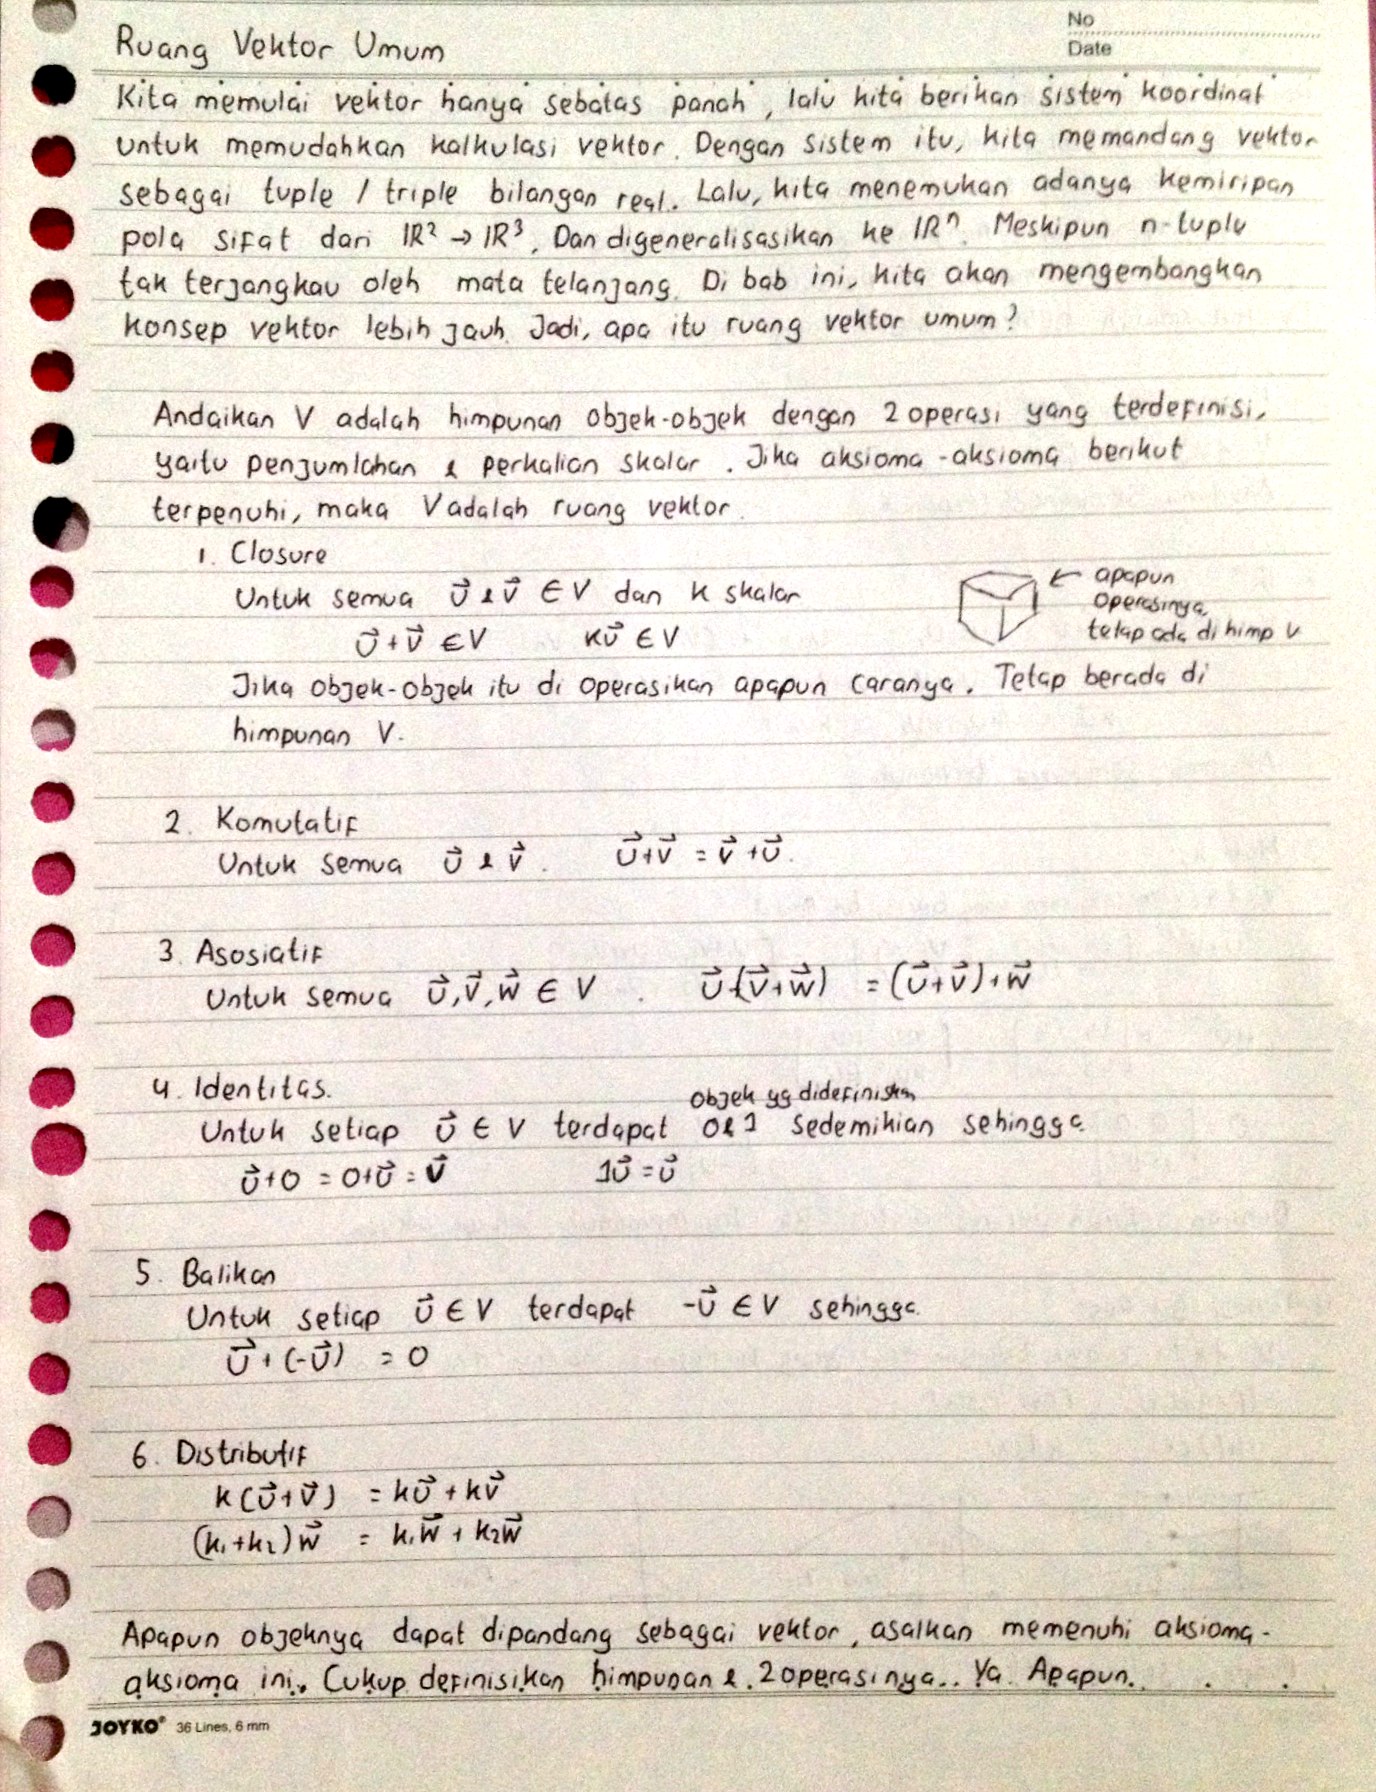 No
Date
Ruang Vektor Umum
Kita memulai vektor hanya sebatas panah, lalu kita berikan sistem koordinat
untuk memudahkan kalkulasi vektor. Dengan sistem itu, kita memandang vektor
sebagai tuple / triple bilangan real. Lalu, kita menemukan adanya kemiripan
pola sifat dari ℝ² → ℝ³. Dan digeneralisasikan ke ℝⁿ. Meskipun n-tuple
tak terjangkau oleh mata telanjang. Di bab ini, kita akan mengembangkan
konsep vektor lebih jauh. Jadi, apa itu ruang vektor umum?
Andaikan V adalah himpunan objek-objek dengan 2 operasi yang terdefinisi,
yaitu penjumlahan & perkalian skalar. Jika aksioma-aksioma berikut
terpenuhi, maka V adalah ruang vektor.
1. Closure
Untuk semua u⃗ & v⃗ ∈ V dan k skalar
u⃗ + v⃗ ∈ V ku⃗ ∈ V
← apapun
operasinya
tetap ada di himp V
Jika objek-objek itu di operasikan apapun caranya. Tetap berada di
himpunan V.
2. Komutatif
Untuk semua u⃗ & v⃗. u⃗+v⃗ = v⃗+u⃗.
3. Asosiatif
Untuk semua u⃗, v⃗, w⃗ ∈ V. u⃗+(v⃗+w⃗) = (u⃗+v⃗)+w⃗
4. Identitas.
objek yg didefiniskan
Untuk setiap u⃗ ∈ V terdapat 0 & 1 sedemikian sehingga
u⃗+0 = 0+u⃗ = v⃗ 1u⃗ = u⃗
5. Balikan
Untuk setiap u⃗ ∈ V terdapat -u⃗ ∈ V sehingga
u⃗ + (-u⃗) = 0
6. Distributif
k(u⃗+v⃗) = ku⃗ + kv⃗
(k₁+k₂)w⃗ = k₁w⃗ + k₂w⃗
Apapun objeknya dapat dipandang sebagai vektor, asalkan memenuhi aksioma-
aksioma ini. Cukup definisikan himpunan &. 2 operasinya.. Ya. Apapun..
JOYKO® 36 Lines, 6 mm